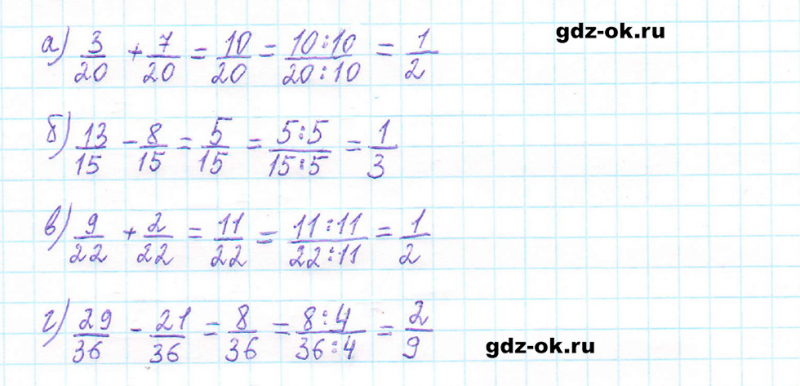 gdz-ok.ru
а) 3/20 + 7/20 = 10/20 = 10:10/20:10 = 1/2
б) 13/15 - 8/15 = 5/15 = 5:5/15:5 = 1/3
в) 9/22 + 2/22 = 11/22 = 11:11/22:11 = 1/2
г) 29/36 - 21/36 = 8/36 = 8:4/36:4 = 2/9
gdz-ok.ru